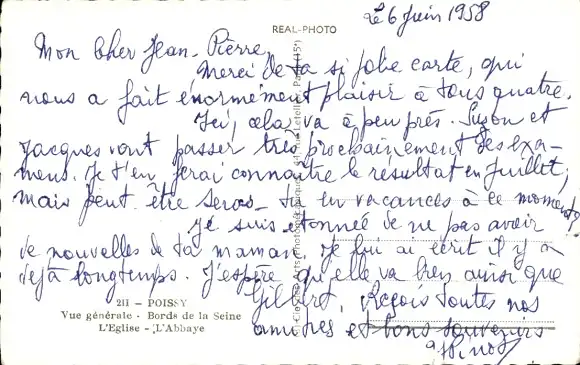 REAL-PHOTO
Le 6 Juin 1958
Mon Cher Jean-Pierre,
Merci de ta si jolie carte, qui
nous a fait énormément plaisir à tous quatre.
Ici, cela va à peu près. Suzon et
Jacques vont passer très prochainement des exa-
mens. Je t'en ferai connaître le résultat en Juillet,
mais peut être seras-tu en vacances à ce moment.
Je suis étonnée de ne pas avoir
de nouvelles de ta maman. Je lui ai écrit il y a
déjà longtemps. J'espère qu'elle va bien ainsi que
Gilbert. Reçois toutes nos
amitiés et bons souvenirs
211 - POISSY
Vue générale - Bords de la Seine
L'Eglise - L'Abbaye